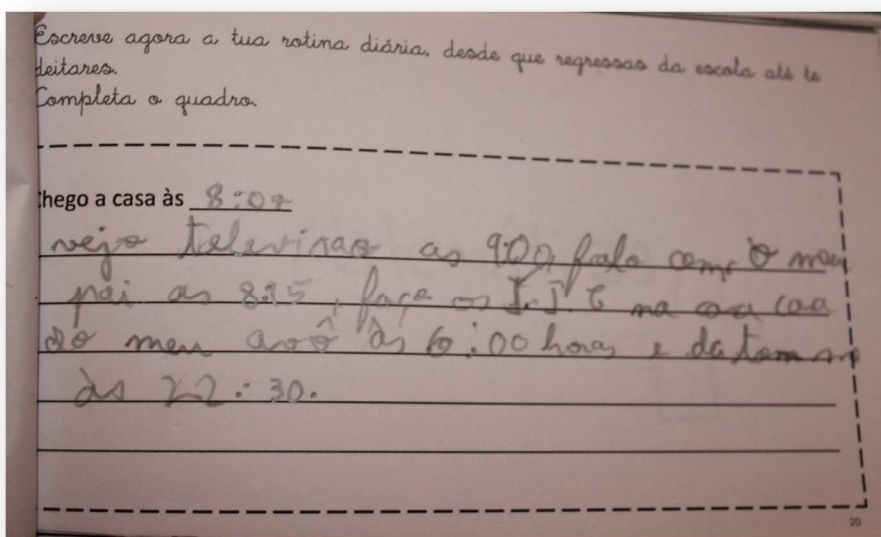 Escreve agora a tua rotina diária, desde que regressas da escola até te
deitares.
Completa o quadro.
Chego a casa às 8:07
vejo televisao as 9:00, falo com o meu
pai as 8:15, faço os T.P.C na casa
do meu avô às 6:00 horas e
às 22:30.
20